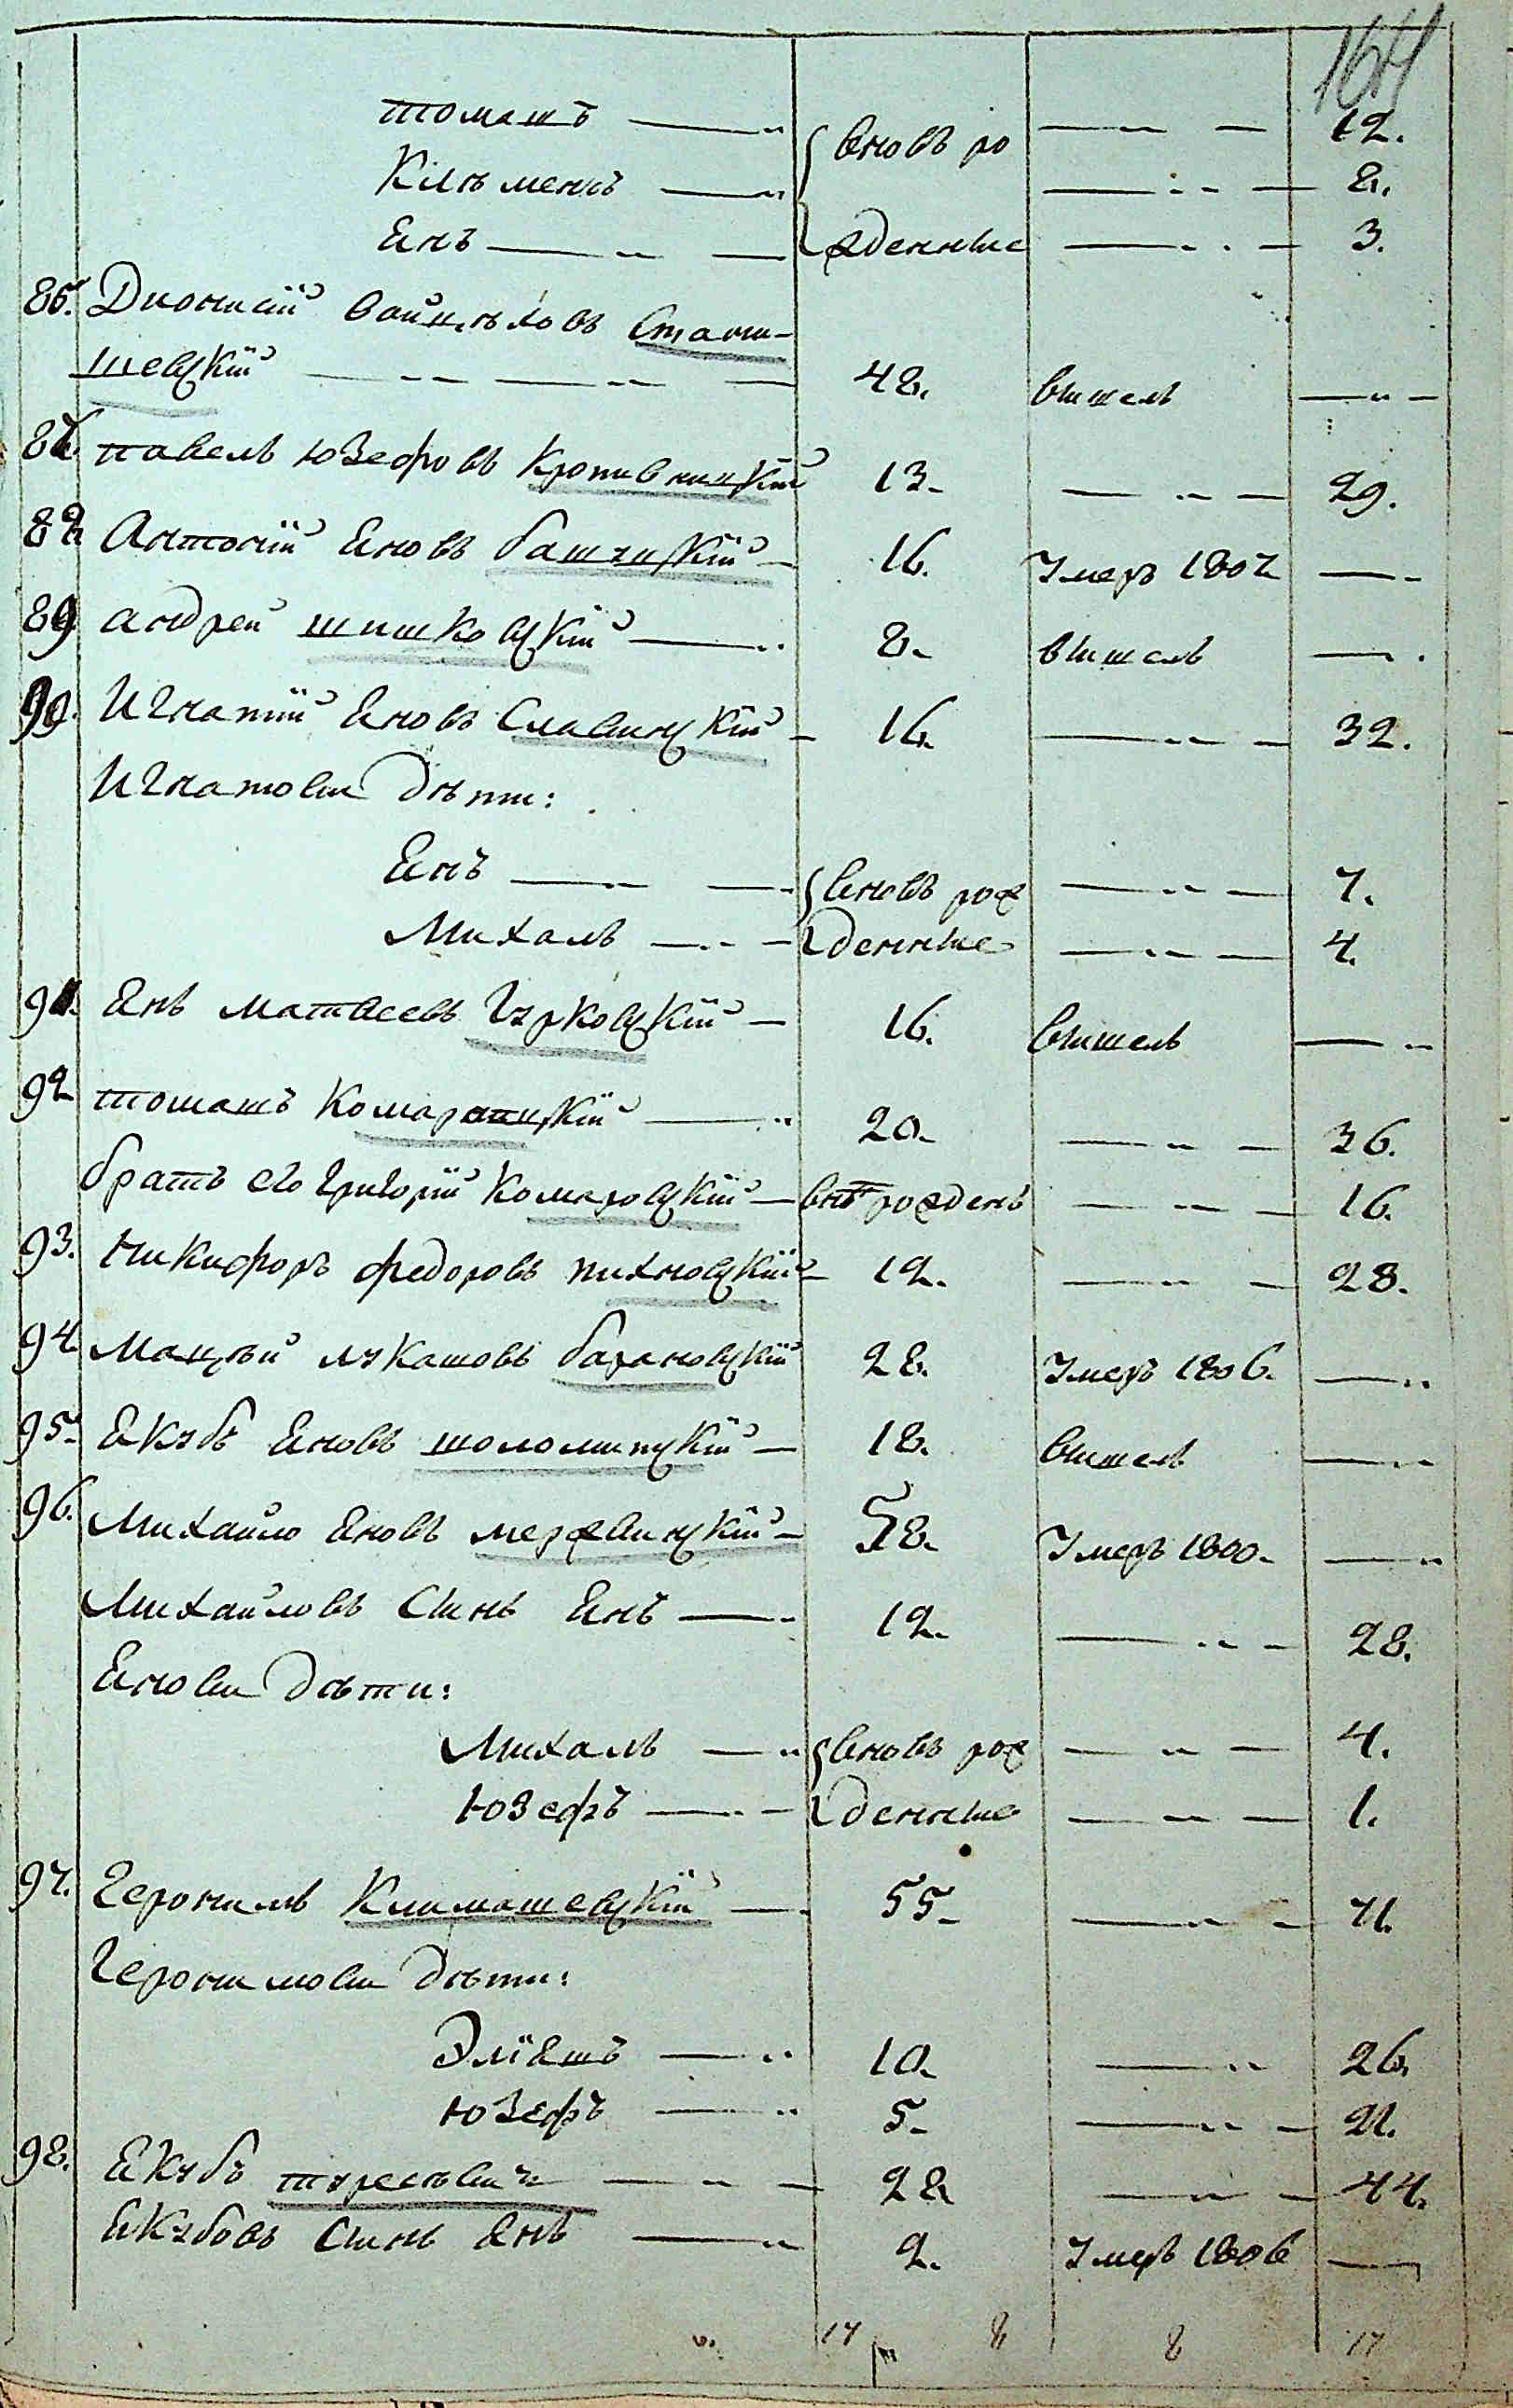 164
Томашъ — вновь ро — 12.
Клѣменсъ — 8.
Янъ — жденные — 3.
86. Дионисій Войцѣховъ Стани-
шевскій — 48. вышелъ —
87. Павелъ Юзефовъ Кропивницкій 13. — 29.
88. Антоній Яновъ Башинскій — 16. умеръ 1807 —
89. Андрей Шишковскій — 8. вышелъ —
90. Игнатій Яновъ Славинскій — 16. — 32.
Игнатовы дѣти:
Янъ — вновь рож — 7.
Михалъ — денные — 4.
91. Янъ Матвеевъ Гурковскій — 16. вышелъ —
92. Томашъ Комарницкій — 20. — 36.
братъ его Григорій Комаровскій — внѣ рожденъ — 16.
93. Никифоръ Федоровъ Пихновскій — 12. — 28.
94. Мацѣй Лукашовъ Барановскій 28. умеръ 1806. —
95. Якубъ Яновъ — 18. вышелъ —
96. Михайло Яновъ Мержвинскій — 58. умеръ 1800. —
Михайловъ сынъ Янъ — 12. — 28.
Яновы дѣти:
Михалъ — вновь рож — 4.
Юзефъ — денные — 1.
97. Геронимъ Климашевскій — 55. — 71.
Геронимовы дѣти:
Эліяшъ — 10. — 26.
Юзефъ — 5. — 21.
98. Якубъ — 28 — 44.
Якубовъ сынъ Янъ — 2. умеръ 1806 —
17 8 8 17